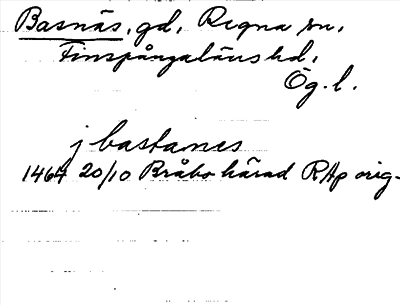 Basnäs, gd, Regna sn,
Finspångaläns hd,
Ög. l.
j bastanes
1464 20/10 Bråbo härad RAp orig.